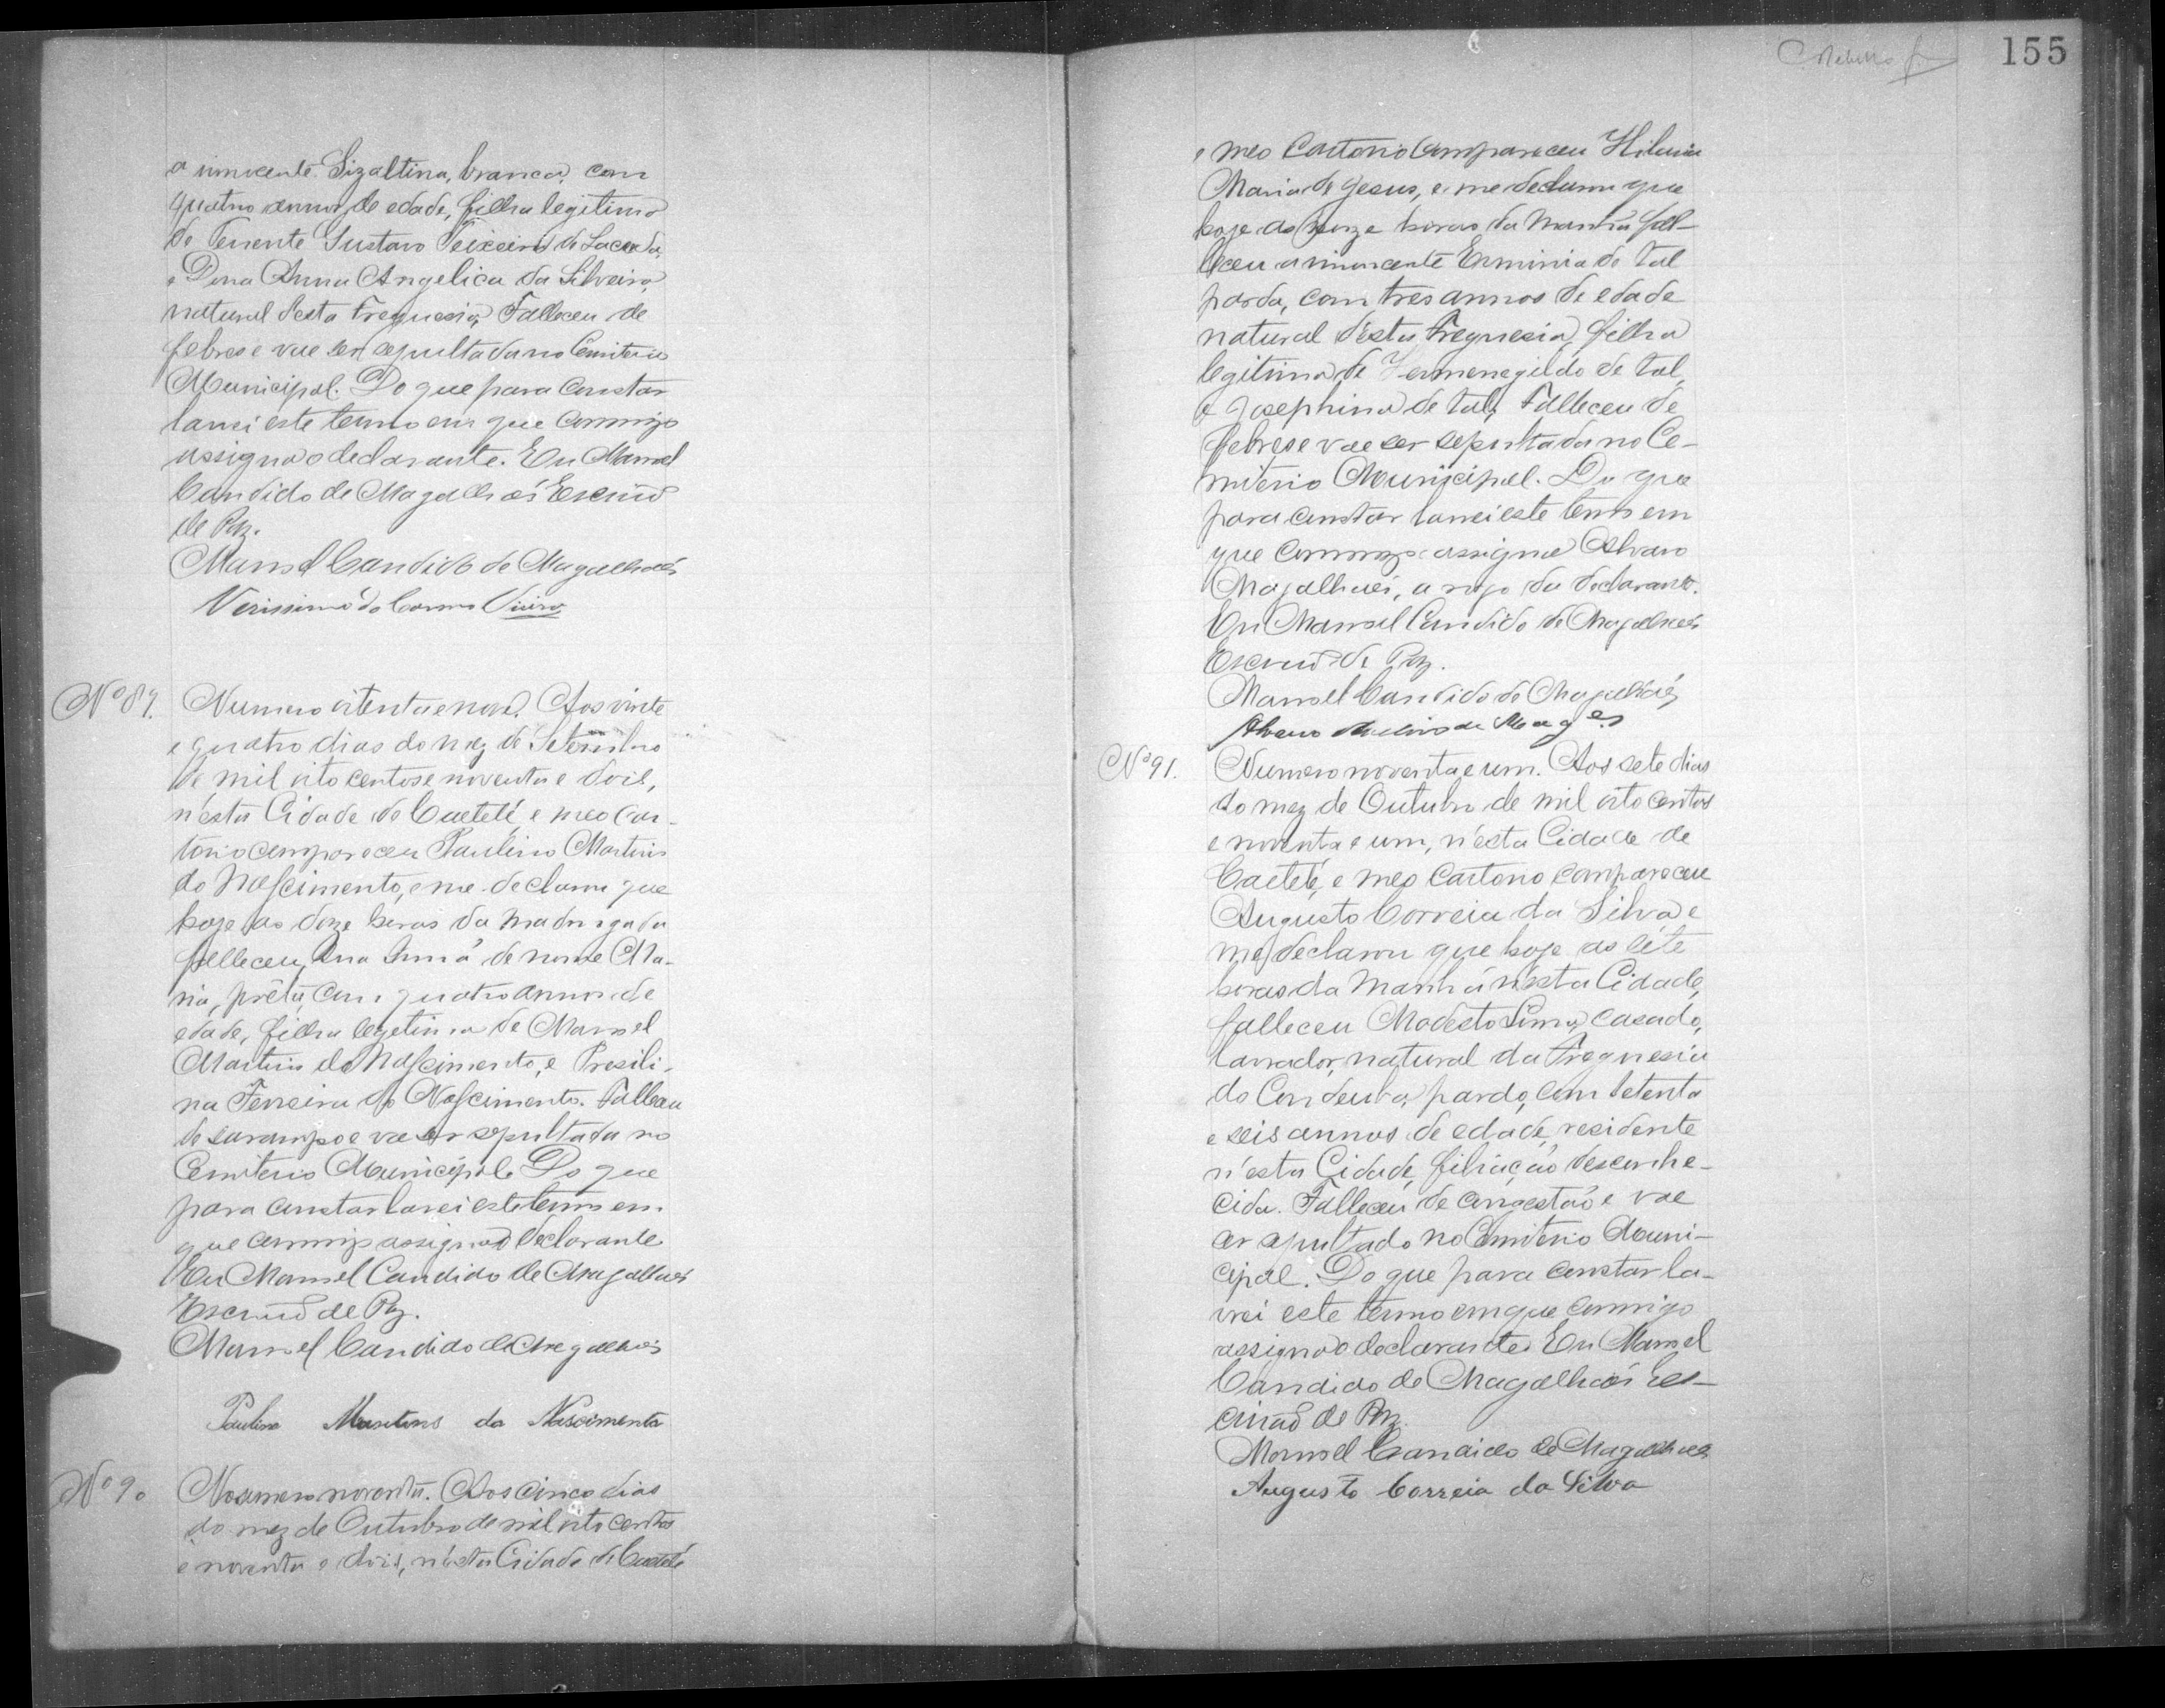 a innocente Sizaltina, branca, com
quatro annos de edade, filha legitima
do Tenente Gustavo Teixeira de Lacerda,
e Dona Anna Angelica da Silveira,
natural desta Freguesia, Falleceu de
febres e vae ser sepultada no Cemiterio
Municipal. Do que para constar
lavrei este termo em que commigo
assigna o declarante. Eu Manoel
Candido de Magalhães Escrivão
de Paz.
Manoel Candido de Magalhães
Verissimo do Carmo
Nº 89.
Numero oitenta e nove. Aos vinte
e quatro dias do mez de Setembro
de mil oito centos e noventa e dois,
n'esta Cidade de Caeteté e meo Car-
torio compareceu Paulino Martins
do Nascimento, e me declarou que
hoje as doze horas da madrugada
falleceu sua Irmã de nome Ma-
ria, prêta, com quatro annos de
edade, filha legetima de Manoel
Martins do Nascimento, e Presili-
na Ferreira do Nascimento. Falleceu
de sarampo e vae ser sepultada no
Cemiterio Municipal. Do que
para constar lavrei este termo em
que commigo assigna o declarante
Eu Manoel Candido de Magalhães
Escrivão de Paz.
Manoel Candido de Magalhães
Paulino Martins do Nascimento
Nº 90
Numero noventa. Aos cinco dias
do mez de Outubro de mil oito centos
e noventa e dois, n'esta Cidade de Caeteté
155
e meo Cartorio compareceu Hilaria
Maria de Jesus, e me declarou que
hoje as onze horas da manhã fal-
leceu a innocente Erminia de tal
parda, com tres annos de edade
natural d'esta Freguesia, filha
legitima de Hermenegildo de tal,
e Josephina de tal, Falleceu de
febres e vae ser sepultada no Ce-
miterio Municipal. Do que
para constar lavrei este termo em
que commigo assigna Alvaro
Magalhães, a rogo da declarante.
Eu Manoel Candido de Magalhães
Escrivão de Paz.
Manoel Candido de Magalhães
Alvaro de Mag.es
Nº 91.
Numero noventa e um. Aos sete dias
do mez de Outubro de mil oito centos
e noventa e um, n'esta Cidade de
Caeteté, e meo Cartorio compareceu
Augusto Correia da Silva e
me declarou que hoje as sete
horas da manhã n'esta Cidade,
falleceu Modesto Lima, casado,
lavrador, natural da Freguesia
do Condeuba, pardo, com setenta
e seis annos de edade, residente
n'esta Cidade, filiação desconhe-
cida. Falleceu de congestão e vae
ser sepultado no Cemiterio Muni-
cipal. Do que para constar la-
vrei este termo em que commigo
assigna o declarante. Eu Manoel
Candido de Magalhães Es-
crivão de Paz.
Manoel Candido de Magalhães
Augusto Correia da Silva